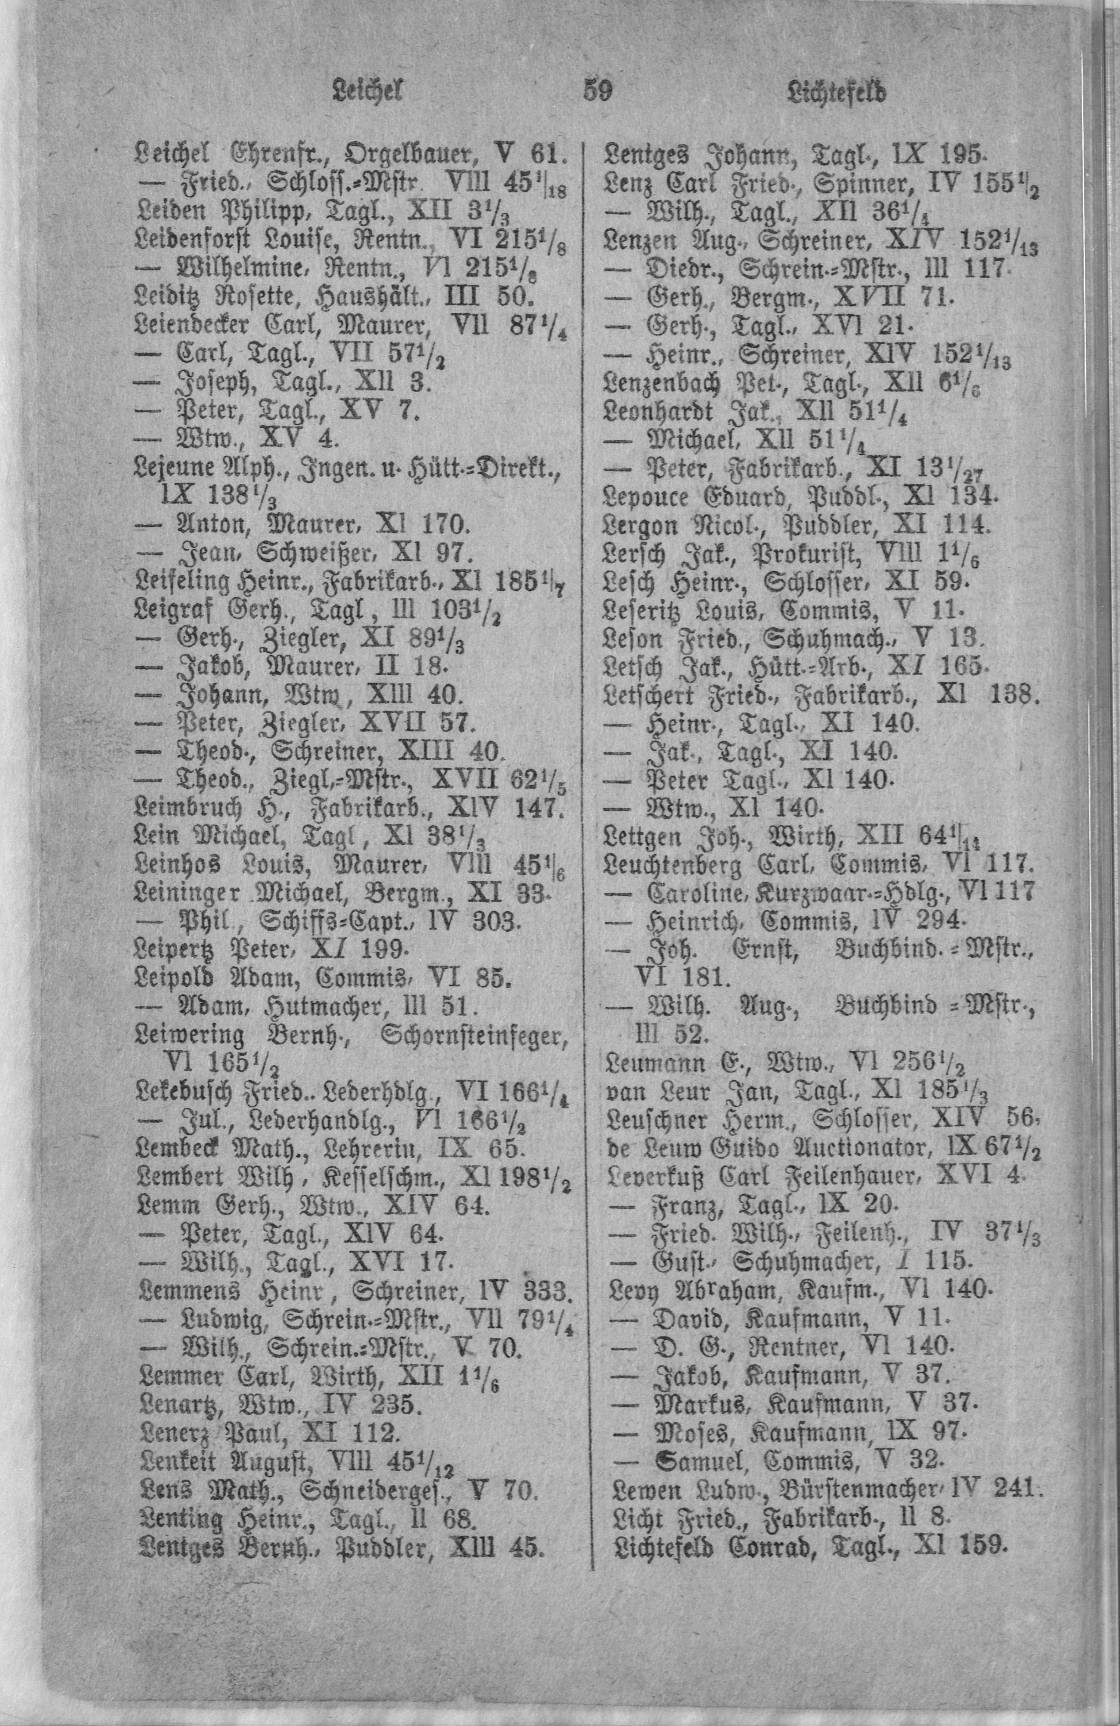 Leichel 59 Lichtefeld
Leichel Ehrenfr., Orgelbauer, V 61.
— Fried., Schloss.-Mstr. VIII 45 1/18
Leiden Philipp, Tagl., XII 3 1/3
Leidenforst Louise, Rentn., VI 215 1/8
— Wilhelmine, Rentn., VI 215 1/8
Leiditz Rosette, Haushält., III 50.
Leiendecker Carl, Maurer, VII 87 1/4
— Carl, Tagl., VII 57 1/2
— Joseph, Tagl., XII 3.
— Peter, Tagl., XV 7.
— Wtw., XV 4.
Lejeune Alph., Ingen. u. Hütt.-Direkt.,
IX 138 1/3
— Anton, Maurer, XI 170.
— Jean, Schweißer, XI 97.
Leifeling Heinr., Fabrikarb., XI 185 1/7
Leigraf Gerh., Tagl, III 103 1/2
— Gerh., Ziegler, XI 89 1/3
— Jakob, Maurer, II 18.
— Johann, Wtw, XIII 40.
— Peter, Ziegler, XVII 57.
— Theod., Schreiner, XIII 40.
— Theod., Ziegl.-Mstr., XVII 62 1/5
Leimbruch H., Fabrikarb., XIV 147.
Lein Michael, Tagl, XI 38 1/3
Leinhos Louis, Maurer, VIII 45 1/6
Leininger Michael, Bergm., XI 33.
— Phil., Schiffs-Capt., IV 303.
Leipertz Peter, XI 199.
Leipold Adam, Commis, VI 85.
— Adam, Hutmacher, III 51.
Leiwering Bernh., Schornsteinfeger,
VI 165 1/2
Lekebusch Fried., Lederhdlg., VI 166 1/4
— Jul., Lederhandlg., VI 166 1/2
Lembeck Math., Lehrerin, IX 65.
Lembert Wilh, Kesselschm., XI 198 1/2
Lemm Gerh., Wtw., XIV 64.
— Peter, Tagl., XIV 64.
— Wilh., Tagl., XVI 17.
Lemmens Heinr, Schreiner, IV 333.
— Ludwig, Schrein.-Mstr., VII 79 1/4
— Wilh., Schrein.-Mstr., V 70.
Lemmer Carl, Wirth, XII 1 1/6
Lenartz, Wtw., IV 235.
Lenerz Paul, XI 112.
Lenkeit August, VIII 45 1/12
Lens Math., Schneiderges., V 70.
Lenting Heinr., Tagl., II 68.
Lentges Bernh., Puddler, XIII 45.
Lentges Johann, Tagl., IX 195.
Lenz Carl Fried., Spinner, IV 155 1/2
— Wilh., Tagl., XII 36 1/4
Lenzen Aug., Schreiner, XIV 152 1/13
— Diedr., Schrein.-Mstr., III 117.
— Gerh., Bergm., XVII 71.
— Gerh., Tagl., XVI 21.
— Heinr., Schreiner, XIV 152 1/13
Lenzenbach Pet., Tagl., XII 6 1/6
Leonhardt Jak., XII 51 1/4
— Michael, XII 51 1/4
— Peter, Fabrikarb., XI 13 1/27
Lepouce Eduard, Puddl., XI 134.
Lergon Nicol., Puddler, XI 114.
Lersch Jak., Prokurist, VIII 1 1/6
Lesch Heinr., Schlosser, XI 59.
Leseritz Louis, Commis, V 11.
Leson Fried., Schuhmach., V 13.
Letsch Jak., Hütt.-Arb., XI 165.
Letschert Fried., Fabrikarb., XI 138.
— Heinr., Tagl., XI 140.
— Jak., Tagl., XI 140.
— Peter Tagl., XI 140.
— Wtw., XI 140.
Lettgen Joh., Wirth, XII 64 1/14
Leuchtenberg Carl, Commis, VI 117.
— Caroline, Kurzwaar.-Hdlg., VI 117
— Heinrich, Commis, IV 294.
— Joh. Ernst, Buchbind.-Mstr.,
VI 181.
— Wilh. Aug., Buchbind-Mstr.,
III 52.
Leumann E., Wtw., VI 256 1/2
van Leur Jan, Tagl., XI 185 1/3
Leuschner Herm., Schlosser, XIV 56.
de Leuw Guido Auctionator, IX 67 1/2
Leverkuß Carl Feilenhauer, XVI 4.
— Franz, Tagl., IX 20.
— Fried. Wilh., Feilenh., IV 37 1/3
— Gust., Schuhmacher, I 115.
Levy Abraham, Kaufm., VI 140.
— David, Kaufmann, V 11.
— D. G., Rentner, VI 140.
— Jakob, Kaufmann, V 37.
— Markus, Kaufmann, V 37.
— Moses, Kaufmann, IX 97.
— Samuel, Commis, V 32.
Lewen Ludw., Bürstenmacher, IV 241.
Licht Fried., Fabrikarb., II 8.
Lichtefeld Conrad, Tagl., XI 159.